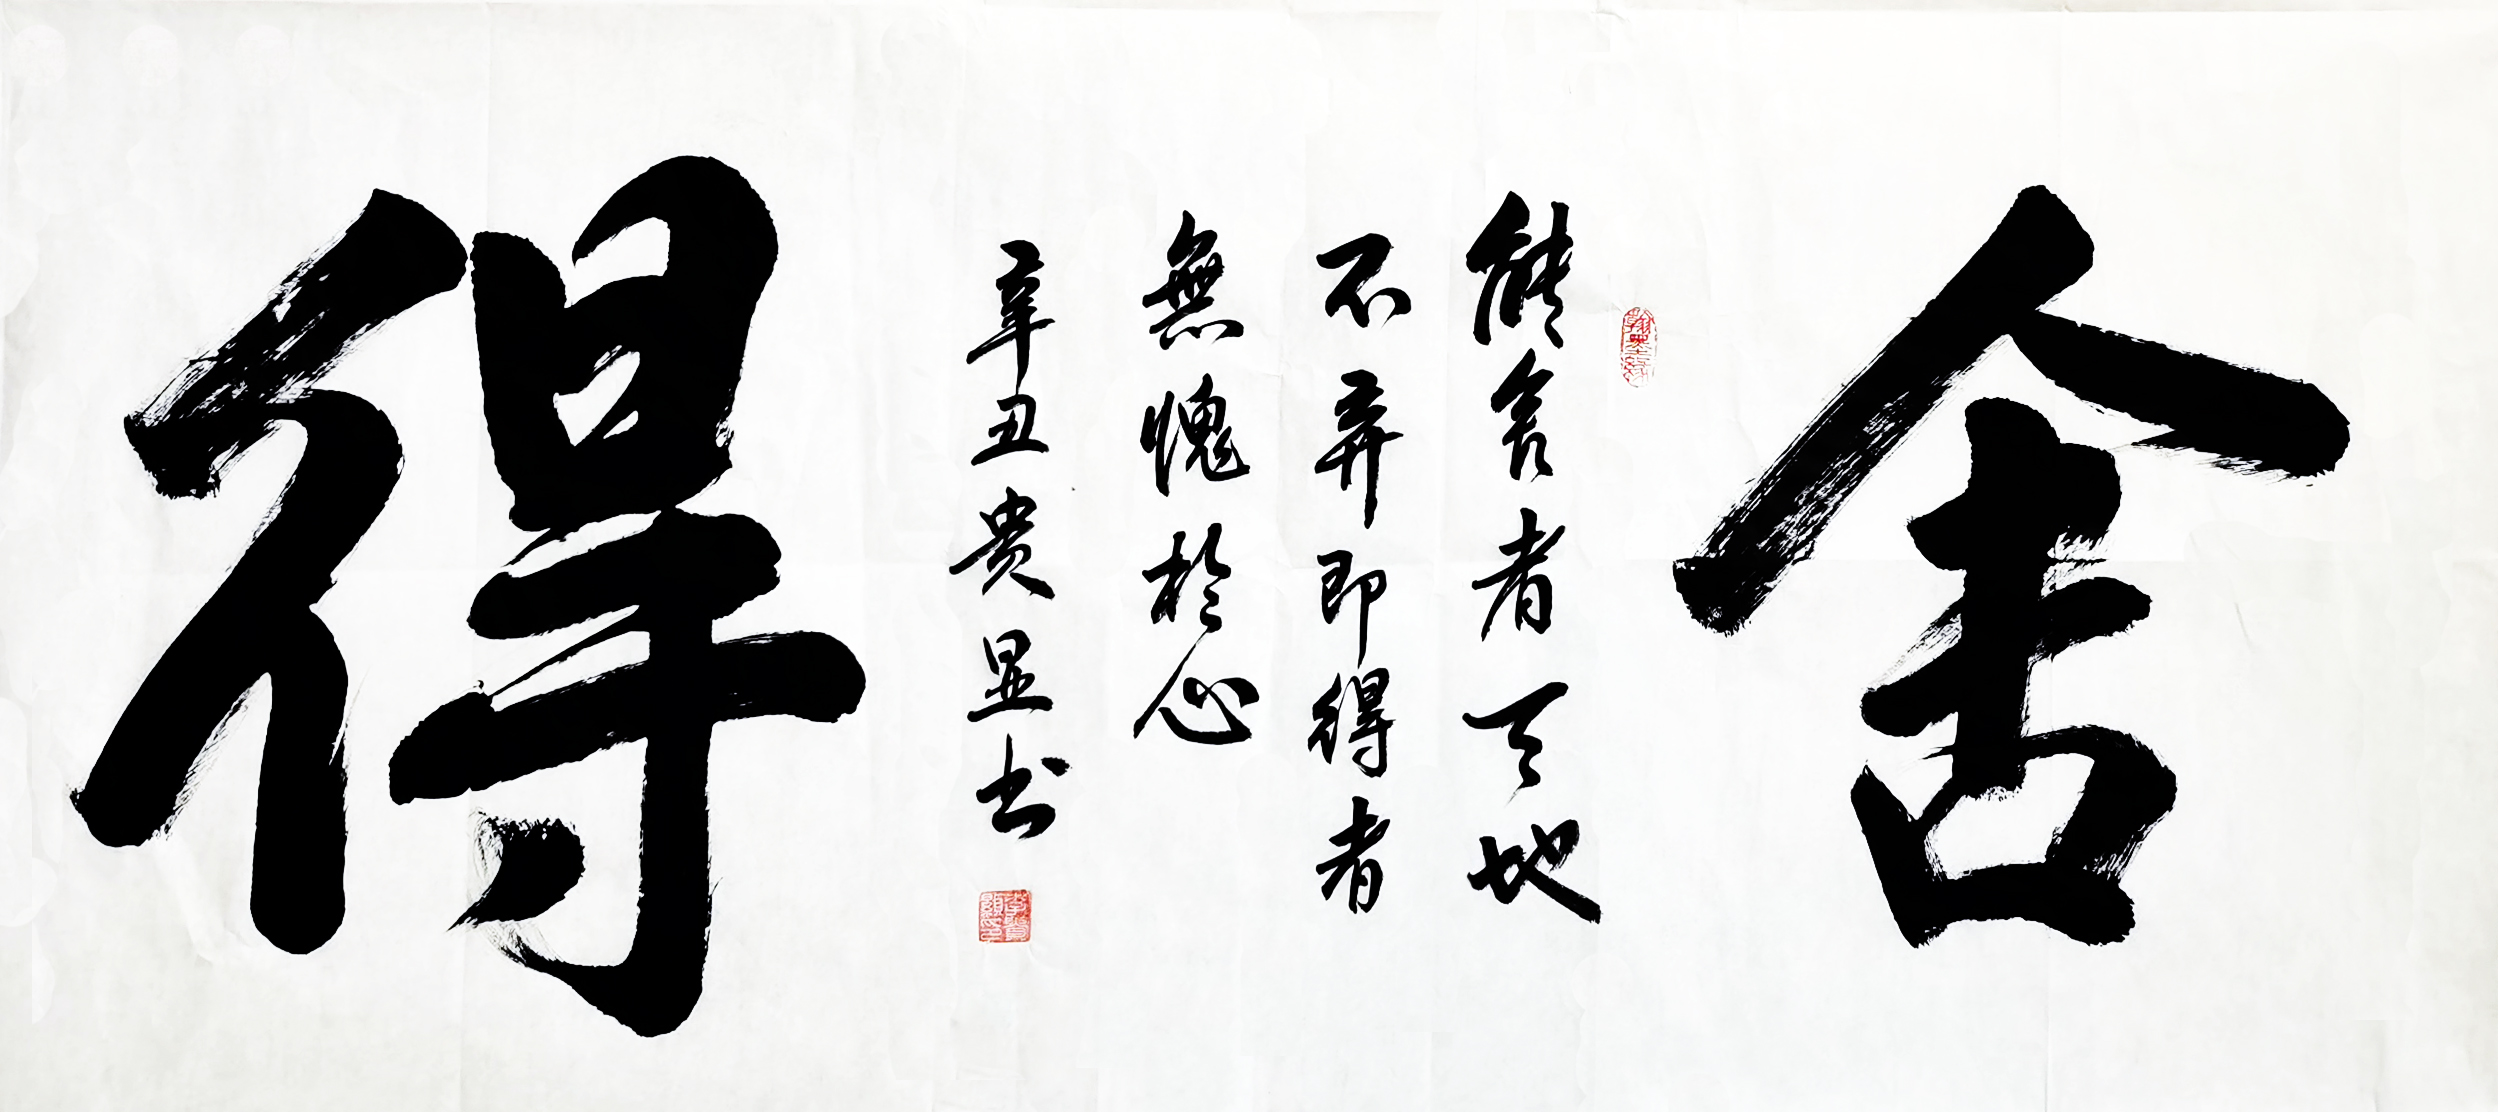 舍
能舍者天地
不弃即得者
無愧於心
辛丑贵显书
得